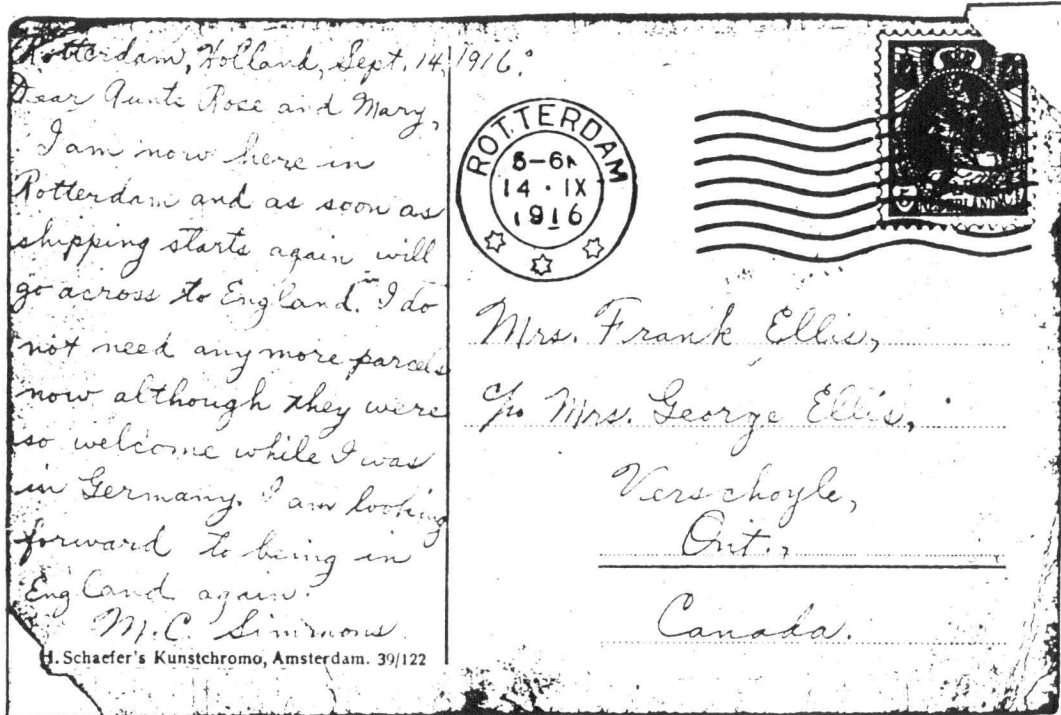 Rotterdam, Holland, Sept. 14, 1916.
Dear Aunti Rose and Mary,
I am now here in
Rotterdam and as soon as
shipping starts again will
go across to England. I do
not need any more parcels
now although they were
so welcome while I was
in Germany. I am looking
forward to being in
England again.
M.C. Simmons
H. Schaefer's Kunstchromo, Amsterdam. 39/122
ROTTERDAM
14 · IX
1916
5
NEDERLAND
Mrs. Frank Ellis,
c/o Mrs. George Ellis,
Verschoyle,
Ont.,
Canada.